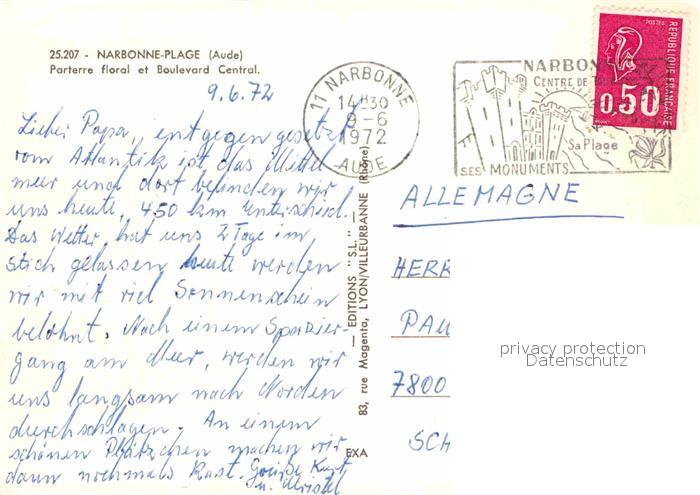 25.207 - NARBONNE-PLAGE (Aude)
Parterre floral et Boulevard Central.
9.6.72
Lieber Papa, entgegen gesetzt
vom Atlantik ist das Mittel
meer und dort befinden wir
uns heute. 450 km Unterschied.
Das Wetter hat uns 2 Tage im
Stich gelassen heute werden
wir mit viel Sonnenschein
belohnt. Nach einem Spazier-
gang am Meer, werden wir
uns langsam nach Norden
durchschlagen. An einem
schönen Plätzchen machen wir
dann nochmals Rast. Grüße Kurt
u. Christel
11 NARBONNE
14H30
9-6
1972
AUDE
NARBONNE
CENTRE DE
Sa Plage
SES MONUMENTS
POSTES
REPUBLIQUE FRANÇAISE
0,50
— EDITIONS "S.L." —
83, rue Magenta, LYON/VILLEURBANNE (Rhône)
EXA
ALLEMAGNE
HERR
PAU
7800
SCH
privacy protection
Datenschutz